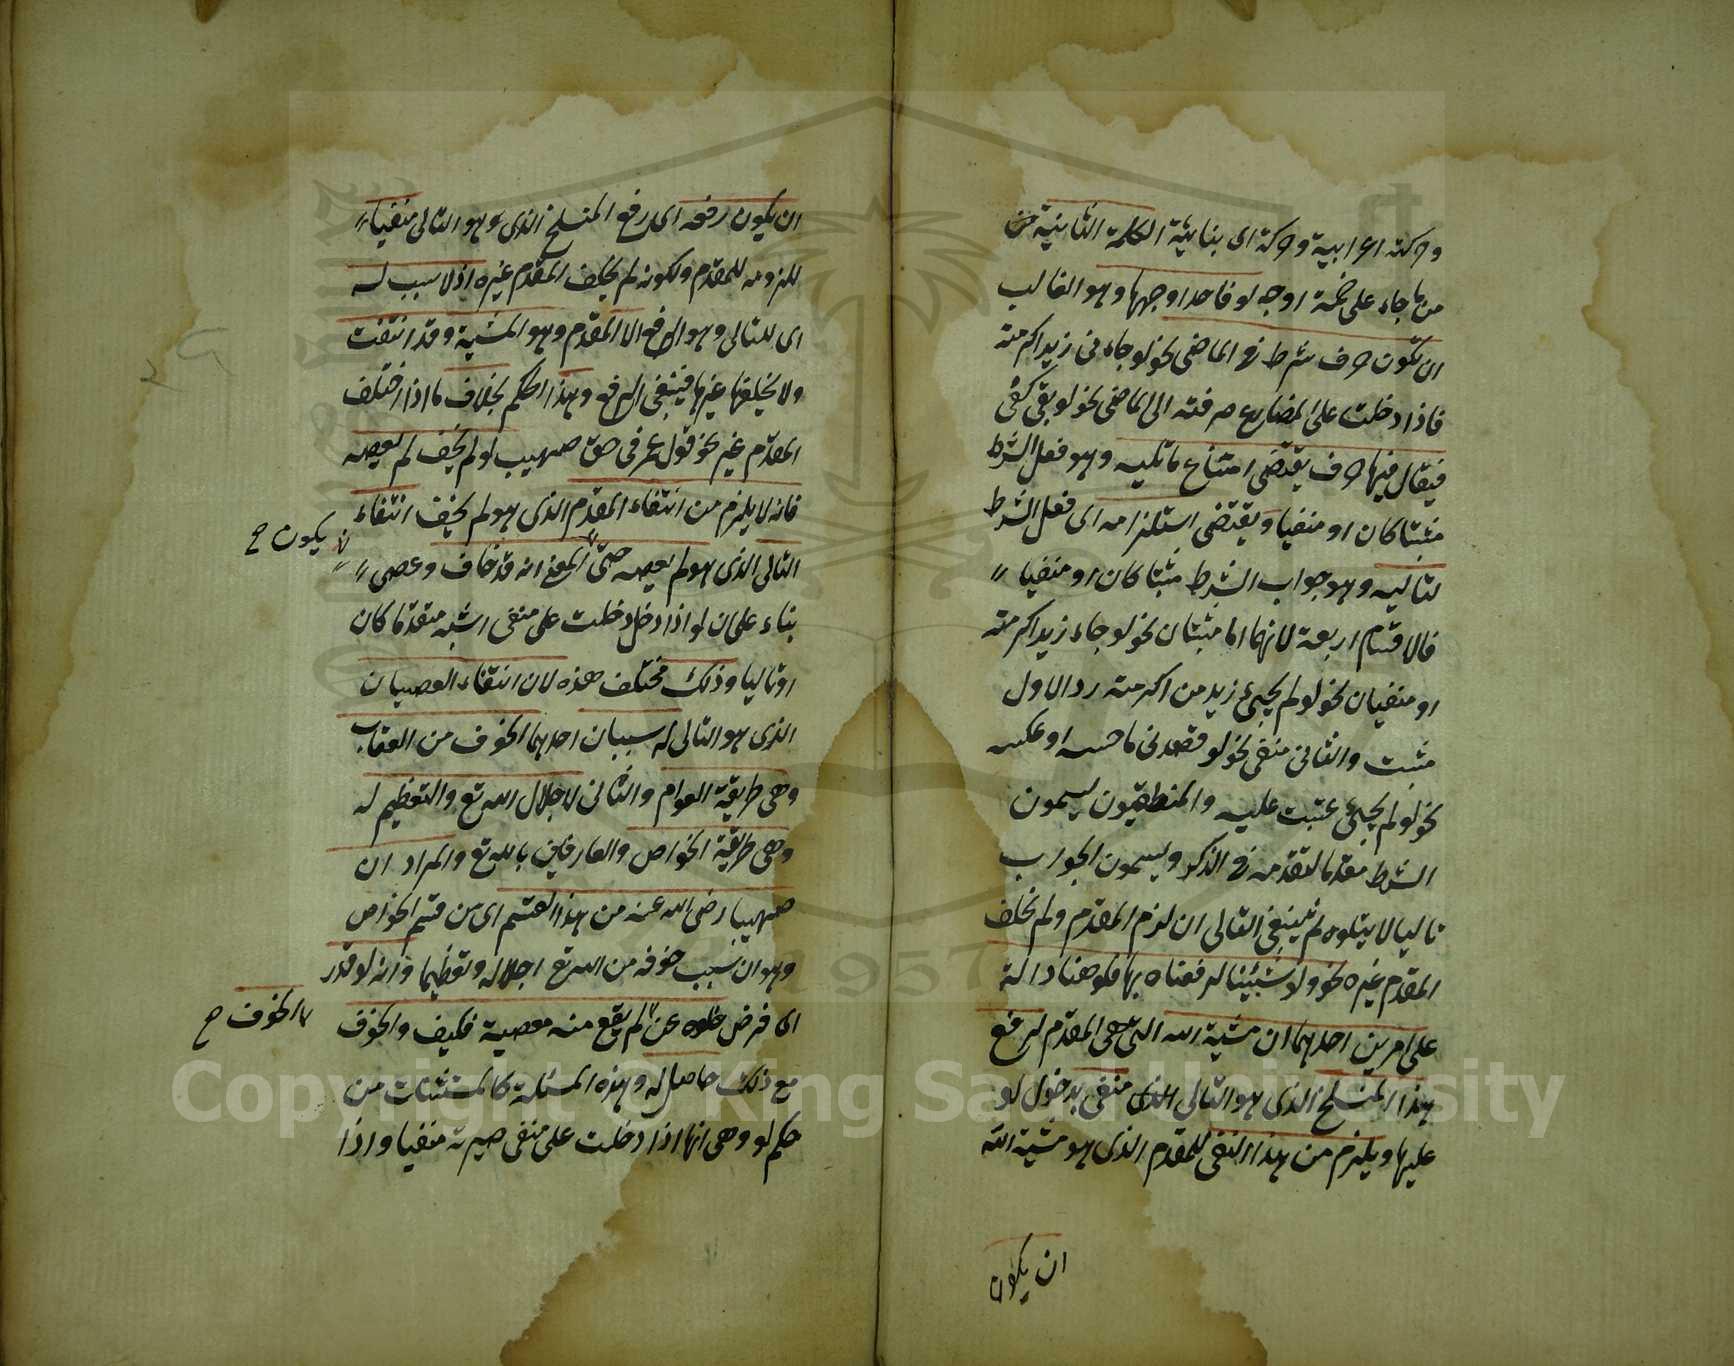 وحركته اعرابية وحركة اى بنائية الكلمة الثانية من
من ما جاء على خمسة اوجه لو فاحد اوجهها وهو الغالب
ان تكون حرف شرط فى الماضى نحو لو جاءنى زيد اكرمته
فاذا دخلت على المضارع صرفته الى الماضى نحو لو يفى كفى
فيقال فيها حرف يقتضى امتناع ما تليه وهو فعل الشرط
مثبتا كان او منفيا ويقتضى استلزامه اى فعل الشرط
لتاليه وهو جواب الشرط مثبتا كان او منفيا
فالاقسام اربعة لانهما اما مثبتان نحو لو جاء زيد اكرمته
او منفيان نحو لو لم يجئ زيد من اكرمته رد الاول
مثبت والثانى منفى نحو لو قصدنى ما حسه او عكسه
نحو لو لم يجئ عتبت عليه والمنطقيون يسمون
الشرط مقدما لتقدمه فى الذكر ويسمون الجواب
تاليا لا يتلوه ثم ينبغى التالى ان لزم المقدم ولم يخلف
المقدم غيره نحو ولو شئنا لرفعناه بها فلو هنا دالة
على امرين احدهما ان مشية الله التى هى المقدم لرفع
هذا المنسلخ الذى هو التالى الذى منفى بدخول لو
عليها ويلزم من هذا النفى للمقدم الذى هو مشية الله
ان يكون
ان يكون رفعه اى رفع المنسلخ الذى هو التالى منفيا
للزومه للمقدم ولكونه لم يخلف المقدم غيره اذ لا سبب له
اى للتالى وهو الرفع الا المقدم وهو المشية وقد انتفت
ولا يخلفها غيرها فينتفى الرفع وهذا الحكم بخلاف ما اذا اختلف
المقدم غير نحو قول عمر فى حق صهيب لو لم يخف لم يعصه
فانه لا يلزم من انتفاء المقدم الذى هو لم يخف انتفاء
التالى الذى هو لم يعصه حتى المعنى انه قد خاف وعصى
يكون ح
بناء على ان لو اذا دخل دخلت على منفى اثبته متقدما كان
او تاليا وذلك مختلف هذه لان انتفاء العصيان
الذى هو التالى له سببان احدهما الخوف من العقاب
وهى طريقة العوام والثانى لاجلال الله تع والتعظيم له
وهى طريقة الخواص والعارفين بالله تع والمراد ان
صهيبا رضى الله عنه من هذا القسم اى من قسم الخواص
وهو ان سبب خوفه من الله تع اجلاله وتعظيما وانه لو قدر
اى فرض خلوه عن لم يقع منه معصية فكيف والخوف
الخوف ح
مع ذلك حاصل له وهذه المسئلة كالمستثنات من
حكم لو وهى انها اذا دخلت على منفى صيرته منفيا واذا
1957
Copyright © King Saud University